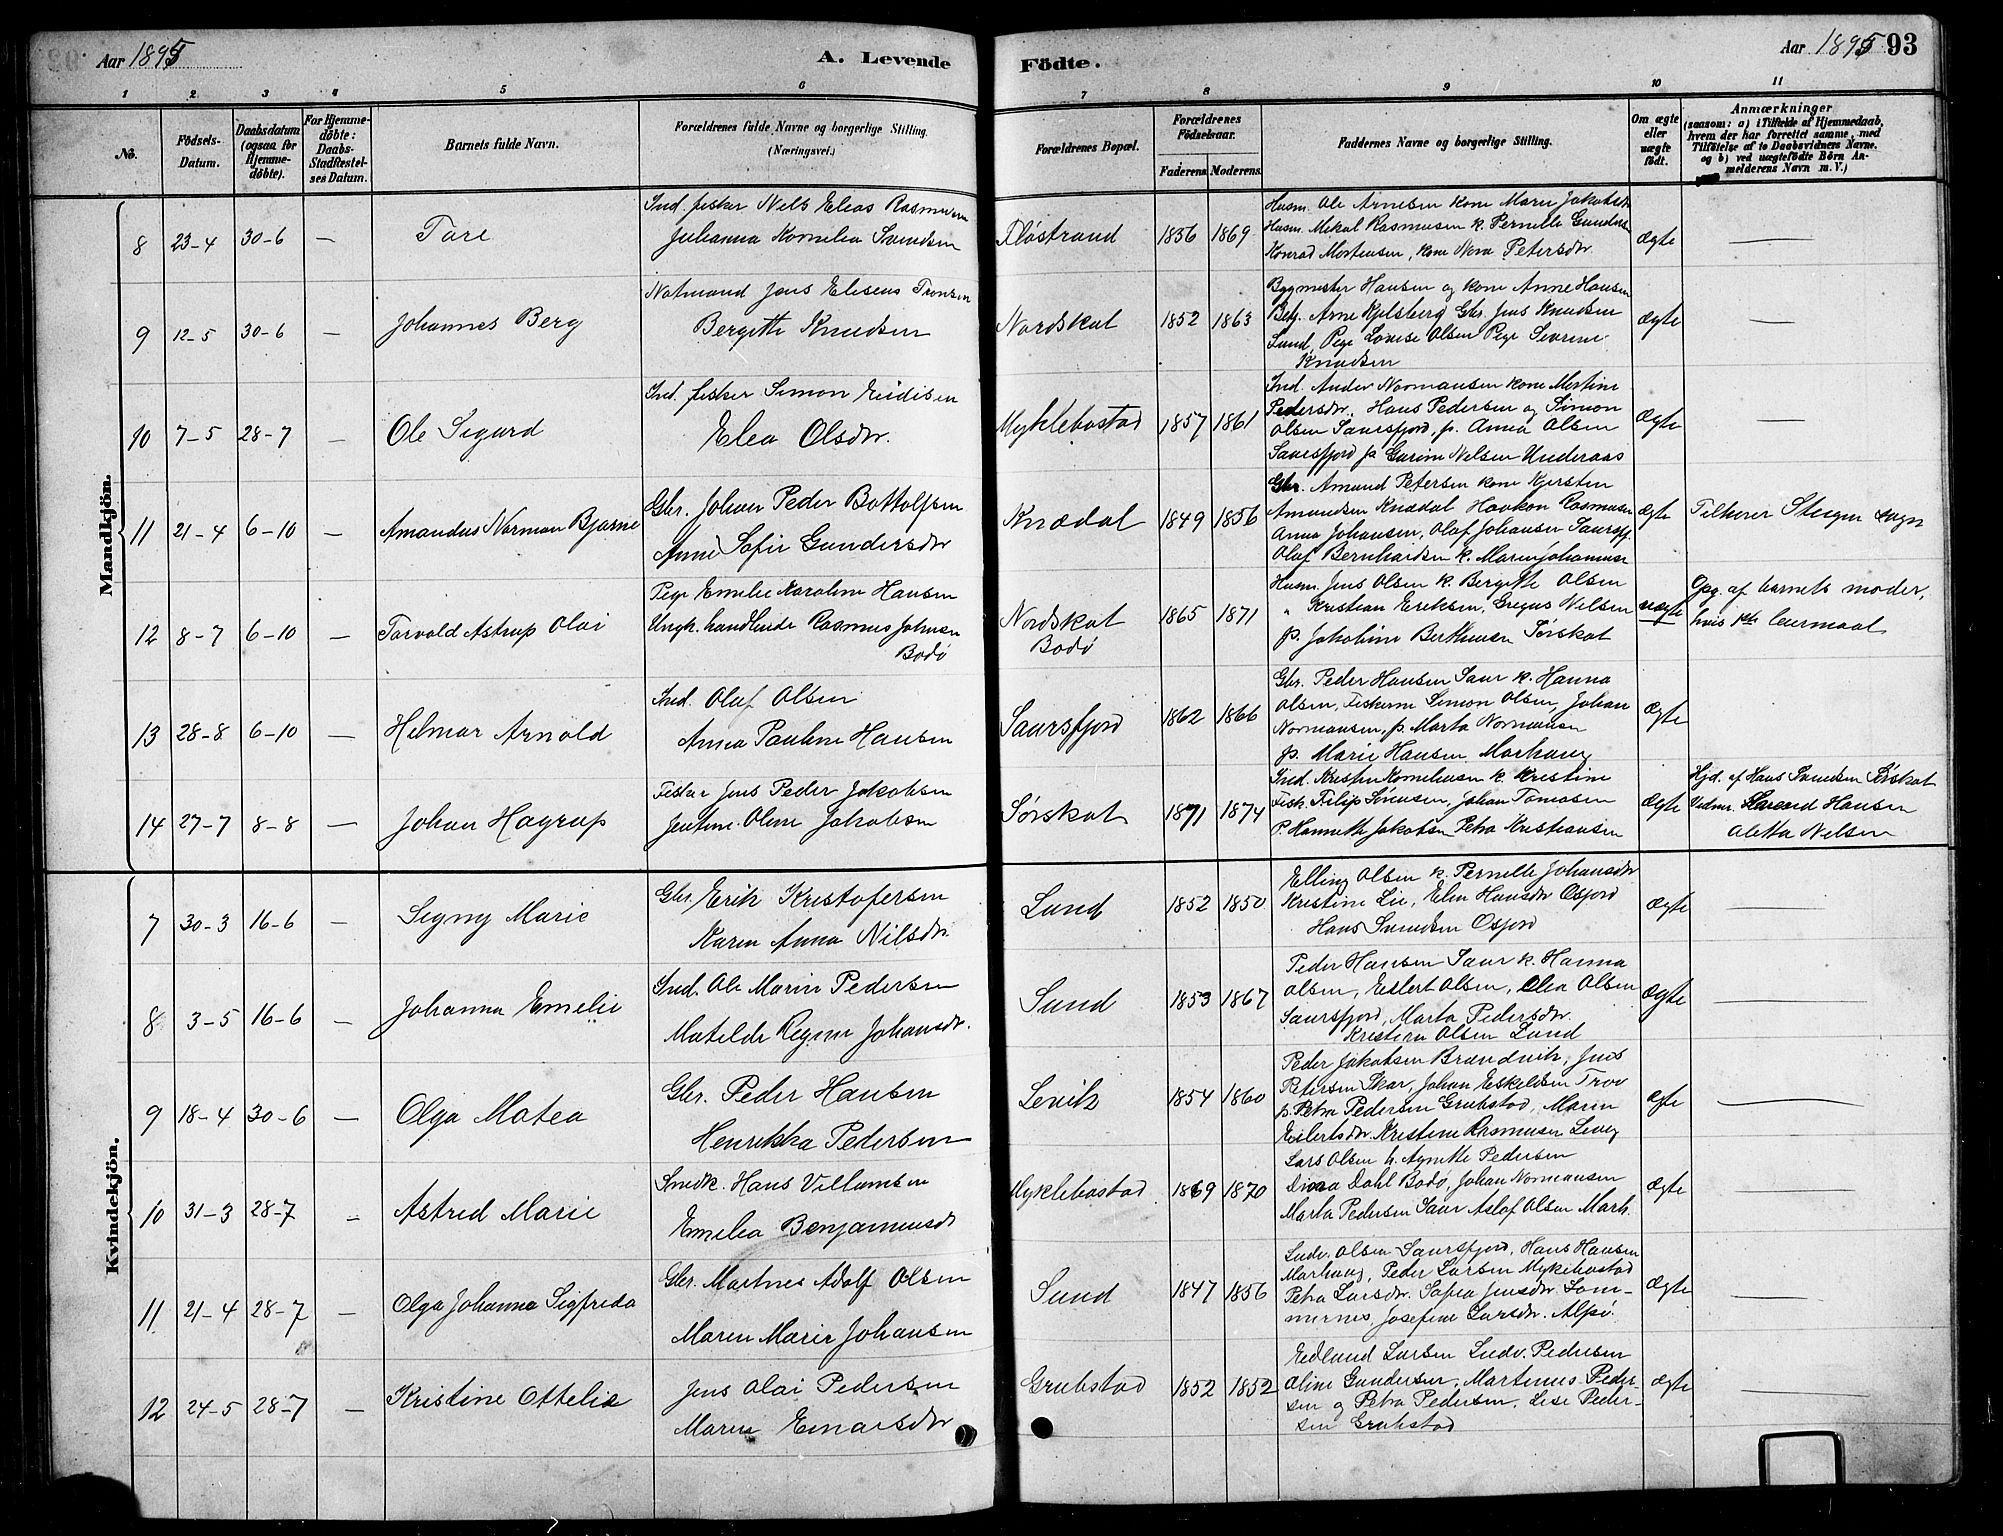 Aar 1895
A. Levende
Födte.
Aar 1895
93
1 2 3 4 5 6 7 8 9 10 11
No.
Födsels-Datum.
Daabsdatum (ogsaa for Hjemme-döbte).
For Hjemme-döbte: Daabs-Stadfæstel-ses Datum.
Barnets fulde Navn.
Forældrenes fulde Navne og borgerlige Stilling.
(Næringsvei.)
Forældrenes Bopæl.
Forældrenes Födselsaar.
Faderens Moderens
Faddernes Navne og borgerlige Stilling.
Om ægte eller uægte födt.
Anmærkninger
(saasom: a) i Tilfælde af Hjemmedaab,
hvem der har forrettet samme, med
Tilföielse af to Daabsvidners Navne,
og b) ved uægtefödte Börn An-
melderens Navn m. V.)
Mandkjön.
8 23-4 30-6 — Tore
Ind. fisker Nels Elias Rasmussen
Julianna Kornelia Svendsen
Fløstrand 1836 1869
Husm. Ole Arnesen kone Marie Jakobsdr
Husm. Mikal Rasmussen k. Pernille Gundersen
Konrad Mortensen, kone Nora Petersdr.
Ægte —
9 12-5 30-6 — Johannes Berg
Notmand Jens Eliseus Tronsen
Bergitte Knudsen
Nordskot 1852 1863
Bygmester Hansen og kone Anne Hansen
Betj. Arne Kjelsberg Gbr. Jens Knudsen
Lund, Pige Lovise Olsen Pige Severine
Knudsen
Ægte —
10 7-5 28-7 — Ole Sigurd
Ind. fisker Simon
Elea Olsdr.
Myklebostad 1857 1861
Ind. Ander Normansen kone Mortine
Pedersdr. Hans Pedersen og Simon
Olsen Saursfjord, p. Anna Olsen
Saursfjord p. Nelsen Underaas
Ægte —
11 21-4 6-10 — Amandus Norman Bjarne
Gbr. Johan Peder Bottolfsen
Anne Sofie Gundersdr
Knædal 1849 1856
Gbr. Amund Petersen kone Kjersten
Amundsen Knædal Haakon Rasmusen
Anna Johansen, Olaf Johansen Saursfj.
Olaf Bernhardsen k. Maren Johannese
Ægte Tilhører Steigen sogn
12 8-7 6-10 — Torvald Astrup Olai
Pige Emelie Karoline Hansen
Ungk. handlende Rasmus Johnsen
Bodø
Nordskot
Bodø
1865 1871
Husm. Jens Olsen k. Bergitte Olsen
" Kristian Eriksen, Gregus Nilsen
p. Jakobine Bertheusen Sørskot
uægte
Opg. af barnets moder,
hvis 1ste leiermaal
13 28-8 6-10 — Helmar Arnold
Ind. Oluf Olsen
Anna Pauline Hansen
Saursfjord 1862 1866
Gbr. Peder Hansen Saur k. Hanna
Olsen, Fiskerne Simon Olsen, Johan
Normansen, p. Marta Normansen
p. Marie Hansen Marhaug
Ægte
14 27-7 8-8 — Johan Hagrup
Fisker Jens Peder Jakobsen
Jentine Oline Jakobsen
Sørskot 1871 1874
Ind. Kristen Korneliusen k. Kristine
Fisk. Filip Sørensen, Johan Tomasen
P. Hannette Jakobsen Petra Kristiansen
Ægte
Hjd. af Hans Svendsen Sørskot
Vidner Hansen
Aletta Nelsen
Kvindekjön.
7 30-3 16-6 — Signy Marie
Gbr. Erik Kristofersen
Karen Anna Nilsdr.
Lund 1852 1850
Elling Olsen k. Pernille Johansdr
Kristine Lie, Elen Hansdr Osfjord
Hans Svendsen Osfjord
Ægte —
8 3-5 16-6 — Johanna Emelie
Ind. Ole Marin Pedersen
Matilde Regine Johansdr.
Sund 1853 1867
Peder Hansen Saur k. Hanna
Olsen, Eilert Olsen, Elea Olsen
Saursfjord, Marta Pedersdr.
Kristina Olsen Lund
Ægte —
9 18-4 30-6 — Olga Matea
Gbr. Peder Hansen
Henrikka Pedersen
Levik 1854 1860
Peder Jakobsen Brandvik, Jens
Petersen Skar, Johan Eskildsen
p. Petra Pedersen Grubstad, Maren
Eilertsdr. Kristine Rasmusen
Ægte —
10 31-3 28-7 — Astrid Marie
Snedk. Hans Villumsen
Emelea Benjaminsdr
Myklebostad 1869 1870
Lars Olsen k. Agnette Pedersen
Dina Dahl Bodø, Johan Normansen
Marta Pedersen Saur Aslaf Olsen Marh.
Ægte —
11 21-4 28-7 — Olga Johanna Sigfreda
Gbr. Martnes Adolf Olsen
Maren Marie Johansen
Sund 1847 1856
Ludv. Olsen Saursfjord, Hans Hansen
Marhaug, Peder Larsen Myklebostad
Petra Larsdr. Sofia Jensdr. Som-
mernes, Josefine Larsdr. Alpø.
Ægte —
12 24-5 28-7 — Kristine Ottelia
Jens Olai Pedersen
Maren Einarsdr
Grubstad 1852 1852
Edlund Larsen Ludv. Pedersen
Oline Gundersen, Martinus Peder-
sen og Petra Pedersen, Lise Peder-
sen Grubstad
Ægte —